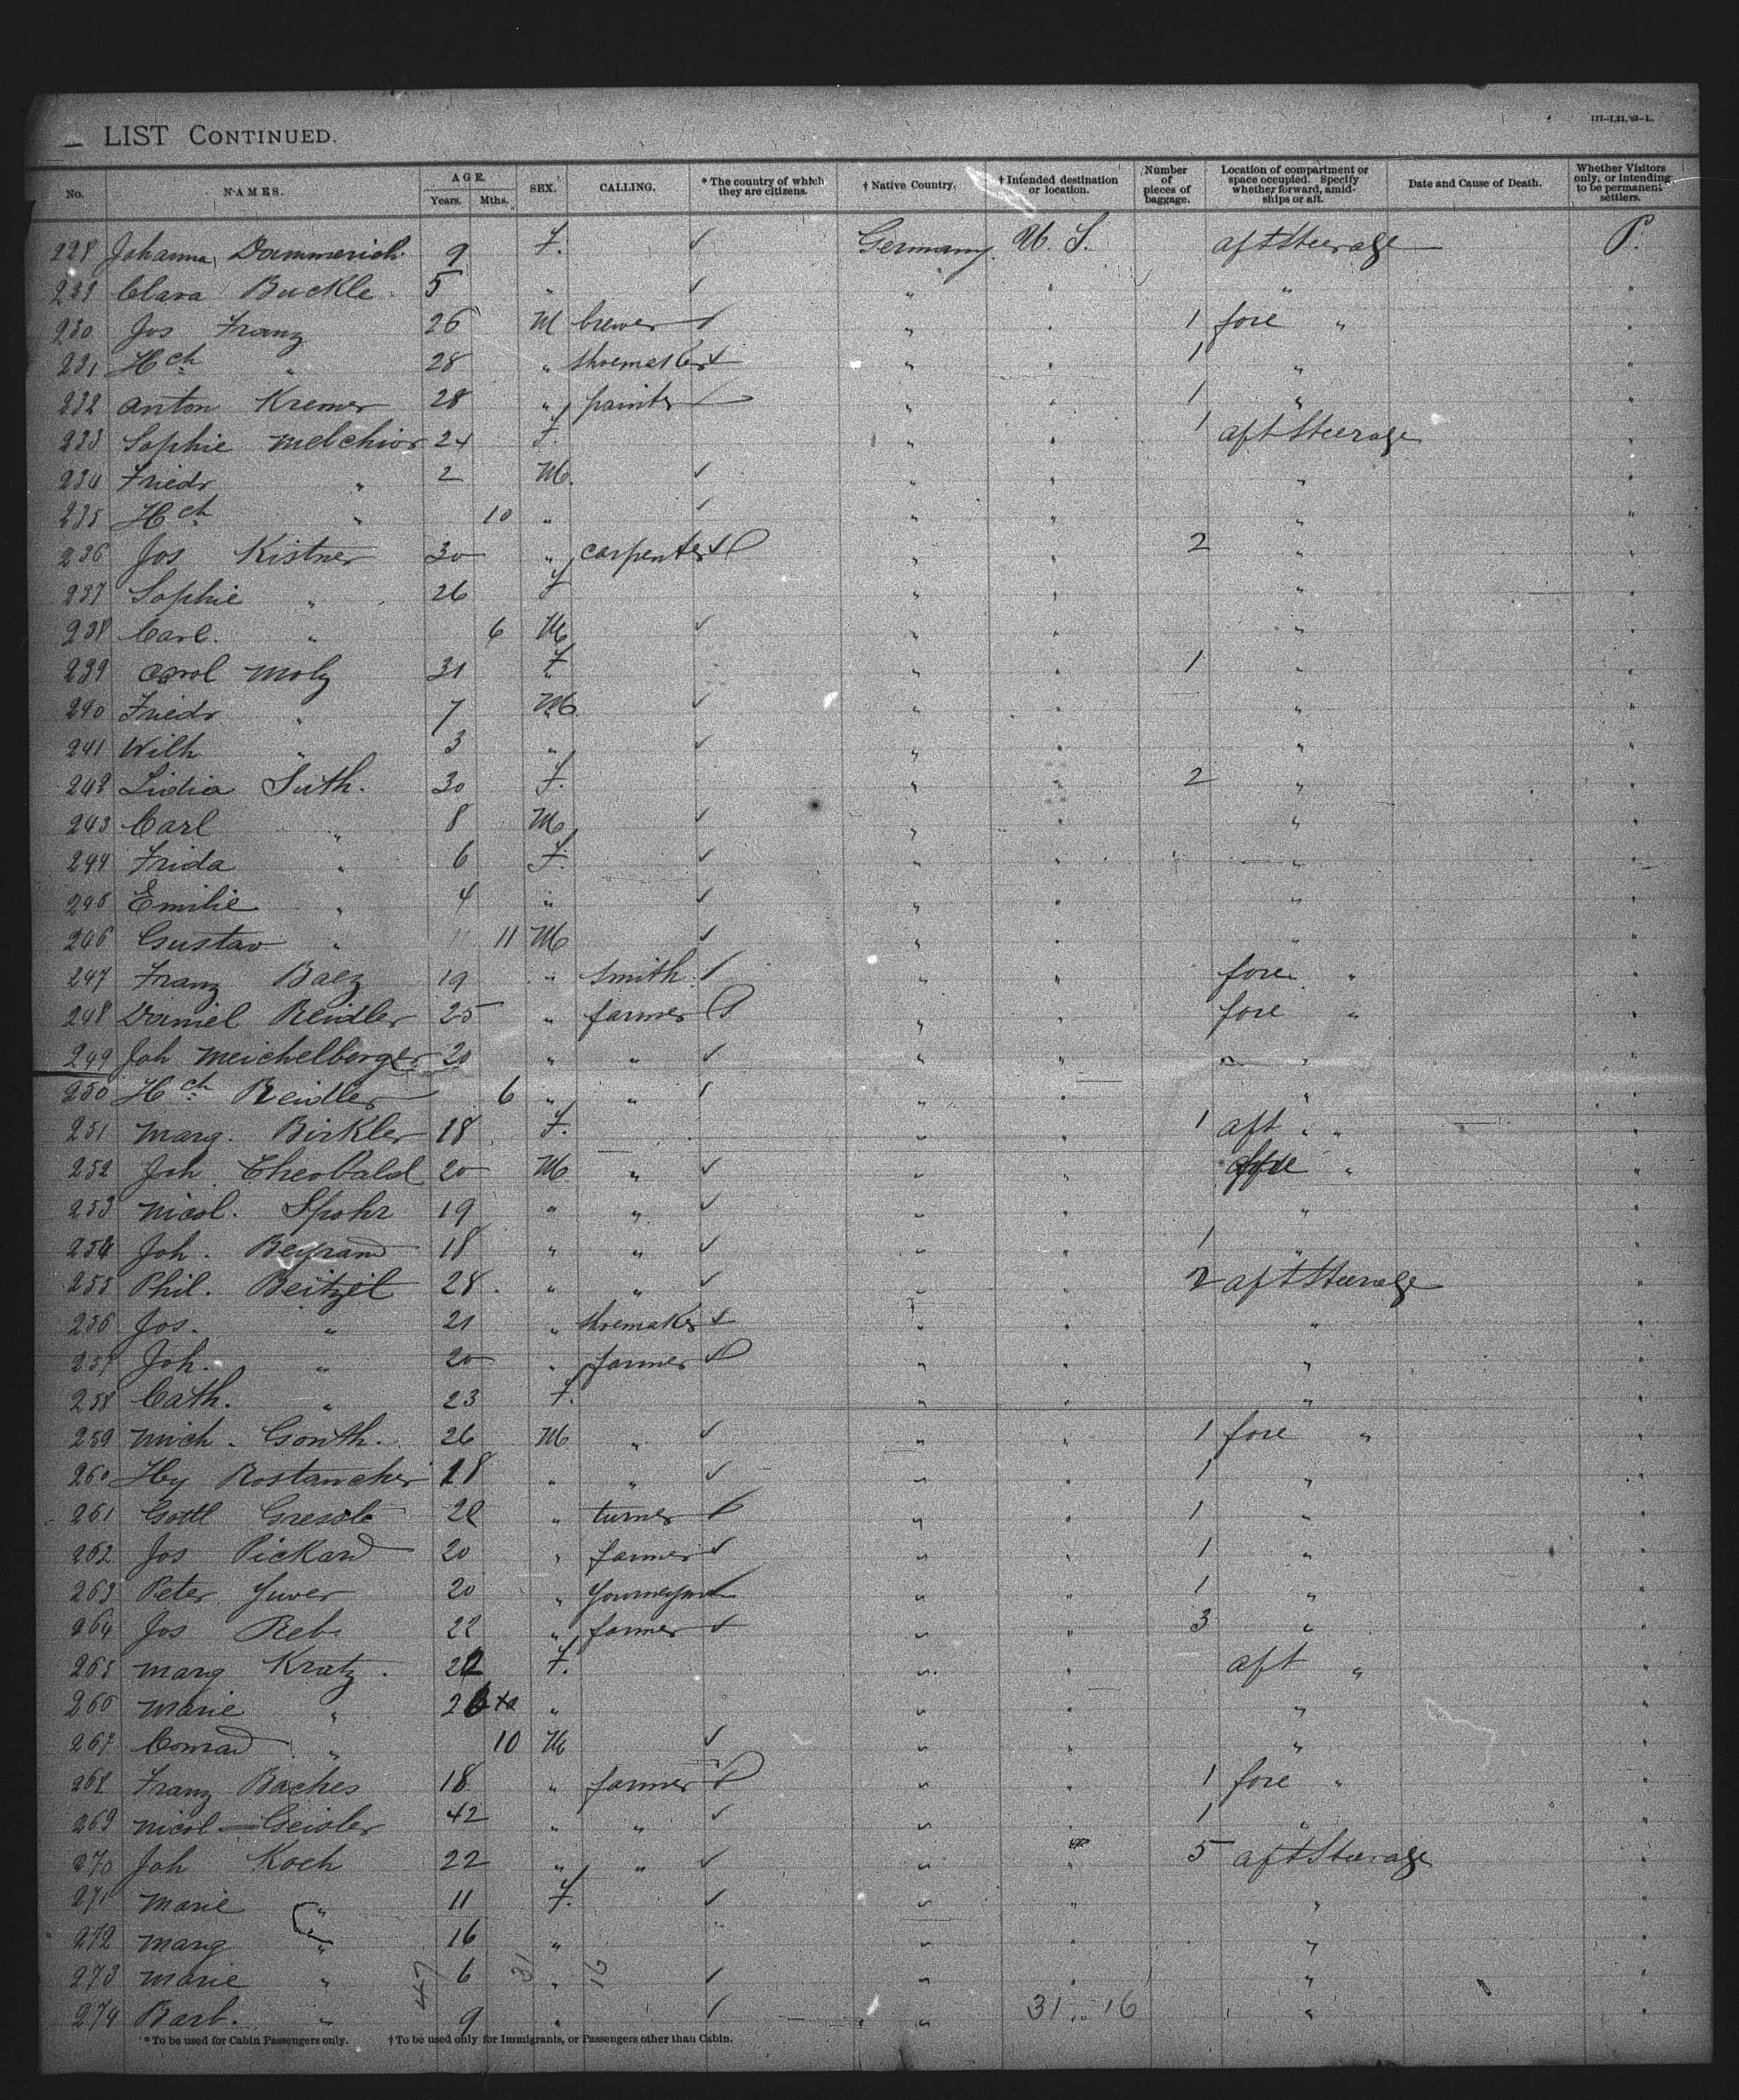 LIST CONTINUED.
111-7,21,'93-L.
No. NAMES. AGE. Years. Mths. SEX. CALLING. * The country of which they are citizens. † Native Country. † Intended destination or location. Number of pieces of baggage. Location of compartment or space occupied. Specify whether forward, amidships or aft. Date and Cause of Death. Whether Visitors only, or intending to be permanent settlers.
228 Johanna Dammerich 9 F. ✓ Germany U. S. aft Steerage P.
229 Clara Buckle 5 " ✓ " " "
230 Jos Franz 26 M brewer ✓ " " 1 fore " "
231 Hch " 28 " shoemaker ✓ " " 1 " "
232 Anton Kremer 28 " painter ✓ " " 1 " "
233 Sophie Melchior 24 F. " " 1 aft Steerage "
234 Friedr " 2 M. ✓ " " " "
235 Hch " 10 " ✓ " " " "
236 Jos Kistner 30 " carpenter ✓ " " 2 " "
237 Sophie " 26 F " " " "
238 Carl. " 6 M ✓ " " " "
239 Carol Moly 31 F " " 1 " "
240 Friedr " 7 M ✓ " " " "
241 Wilh " 3 " ✓ " " " "
242 Lidia Suth. 30 F. " " 2 " "
243 Carl " 8 M ✓ " " " "
244 Frida " 6 F. ✓ " " " "
245 Emilie " 4 " ✓ " " " "
246 Gustav " 11 M ✓ " " " "
247 Franz Balz 19 " smith ✓ " " fore " "
248 Daniel Reidler 25 " farmer ✓ " " fore " "
249 Joh Meichelberger 20 " " ✓ " " " " "
250 Hch Reidler 6 " " ✓ " " " "
251 Marg. Birkler 18 F. " " 1 aft " " "
252 Joh Theobald 20 M " ✓ " " fore " "
253 Nicol. Spohr 19 " " ✓ " " " "
254 Joh. 18 " " ✓ " " 1 " "
255 Phil. Beitzel 28 " " ✓ " " 2 aft Steerage "
256 Jos. " 21 " shoemaker ✓ " " " "
257 Joh. " 20 " farmer ✓ " " " "
258 Cath. " 23 F. " " " "
259 Mich. Gonth. 26 M " ✓ " " 1 fore " "
260 Hy Rostancher 18 " " ✓ " " 1 " "
261 Gottl " turner ✓ " " 1 " "
262 Jos Pickard 20 " farmer ✓ " " 1 " "
263 Peter Yuver 20 " " " 1 " "
264 Jos Reb. 22 " farmer ✓ " " 3 " "
265 Marg Kratz. 22 F. " " aft " "
266 Marie " 26 " " " " "
267 Conrad " 10 M ✓ " " " "
268 Franz Baches 18 " farmer ✓ " " 1 fore " "
269 Nicol Geisler 42 " " ✓ " " 1 " "
270 Joh Koch 22 " " ✓ " " 5 aft Steerage "
271 Marie " 11 F. ✓ " " " "
272 Marg " 16 " " " " "
273 Marie " 6 " ✓ " " " "
274 Barb. " 9 " ✓ " " "
47 31 16
31 .. 16
* To be used for Cabin Passengers only. † To be used only for Immigrants, or Passengers other than Cabin.